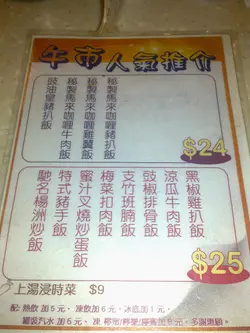 午市人氣推介
秘製馬來咖喱豬扒飯
秘製馬來咖喱雞翼飯
秘製馬來咖喱牛肉飯
豉油皇豬扒飯
$24
黑椒雞扒飯
涼瓜牛肉飯
豉椒排骨飯
支竹班腩飯
梅菜扣肉飯
蜜汁叉燒炒蛋飯
特式豬手飯
馳名楊洲炒飯
$25
上湯浸時菜 $9
配: 熱飲 加5元、凍飲加6元，冰底加1元，
罐裝汽水 加6元、凍
加8元，多謝惠顧。